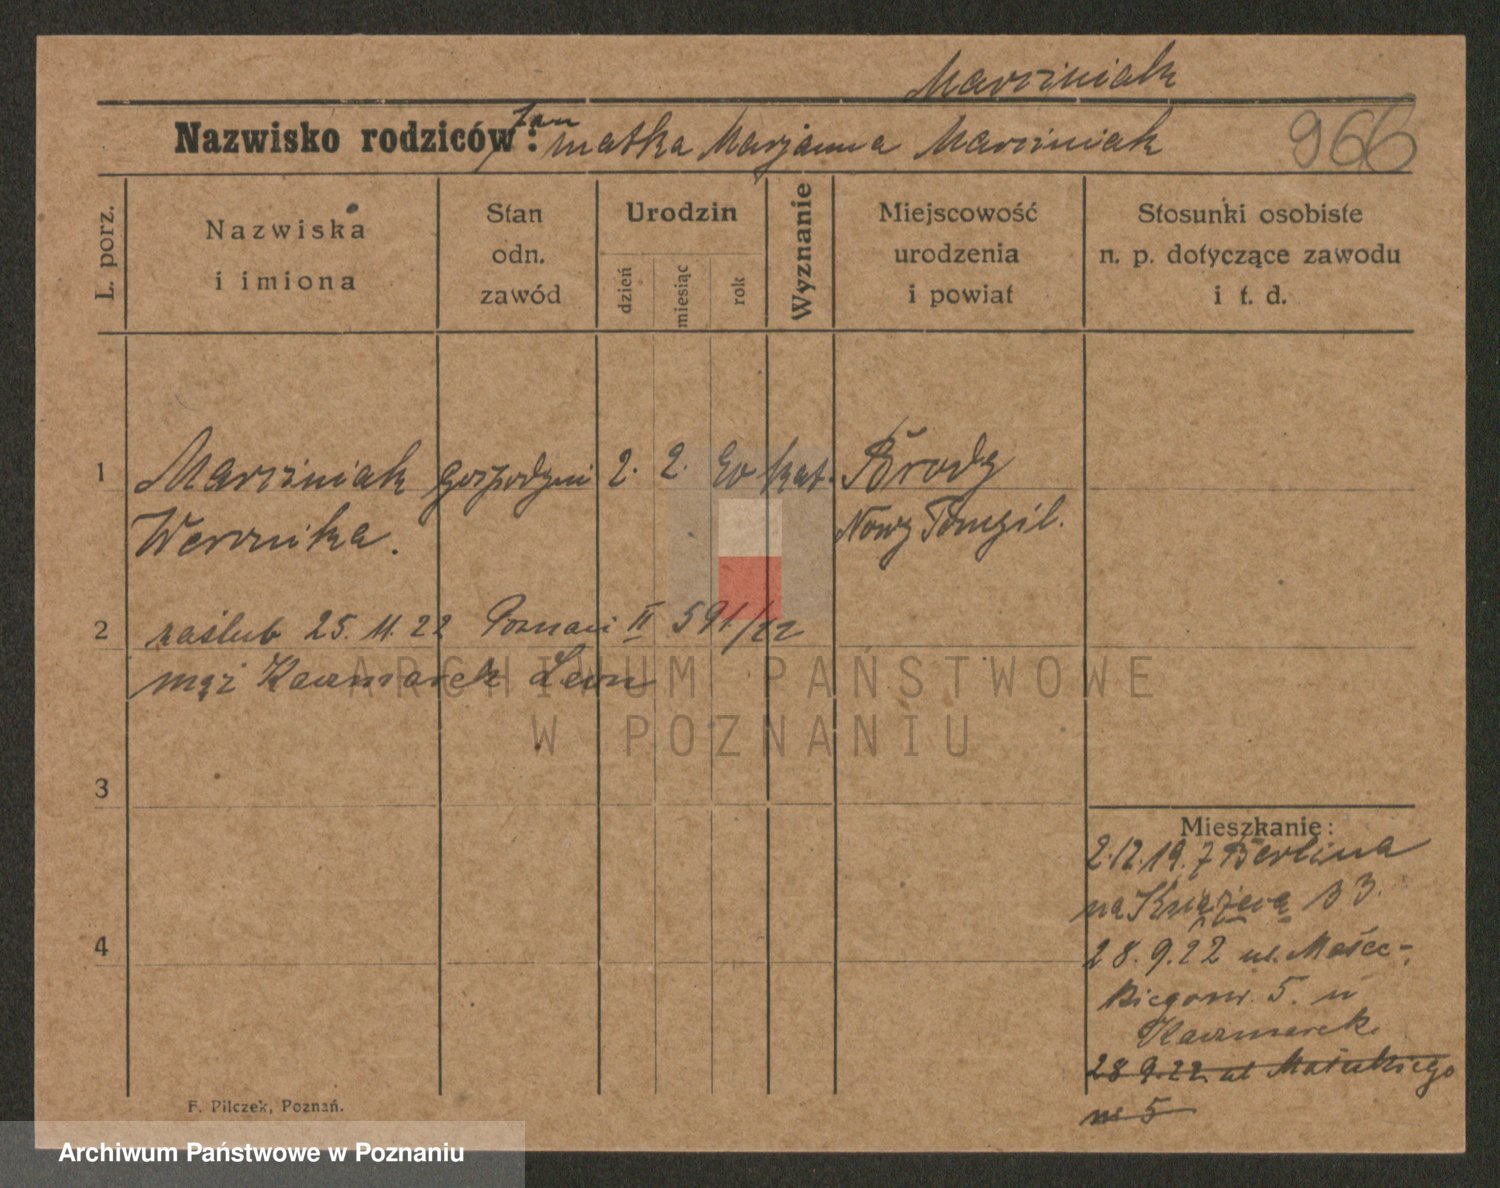 Marciniak
Nazwisko rodziców: Jan
matka Marjanna Marciniak
966
L. porz.
Nazwiska
i imiona
Stan
odn.
zawód
Urodzin
dzień
miesiąc
rok
Wyznanie
Miejscowość
urodzenia
i powiat
Stosunki osobiste
n. p. dotyczące zawodu
i t. d.
1 Marciniak gospodyni 2. 2. kat. Brody
Weronika. Nowy Tomyśl.
2 zaślub 25. 11. 22 Poznań II 591/22
mąż Kaczmarek Leon
3
4
Mieszkanie:
2.12.19. z Berlina
na Książęcą 33.
28.9.22 ul.
5. u
Kaczmarek
28 9.22 ul
5
F. Pilczek, Poznań.
ARCHIWUM PAŃSTWOWE
W POZNANIU
Archiwum Państwowe w Poznaniu